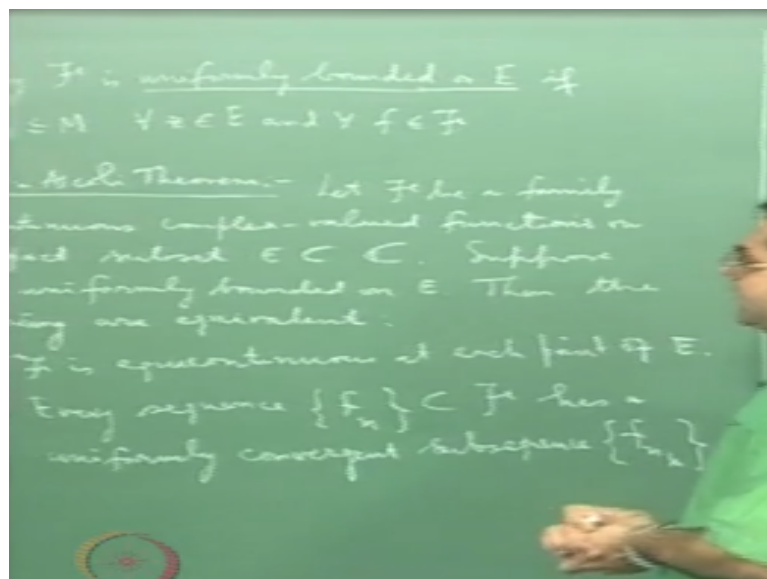 ℱ is uniformly bounded on E if
≤ M ∀ z ∈ E and ∀ f ∈ ℱ
Theorem:- Let ℱ be a family
complex-valued functions on
subset E ⊂ ℂ. Suppose
uniformly bounded on E. Then the
are equivalent:
ℱ is equicontinuous at each point of E.
Every sequence {f_n} ⊂ ℱ has a
uniformly convergent subsequence {f_{n_k}}